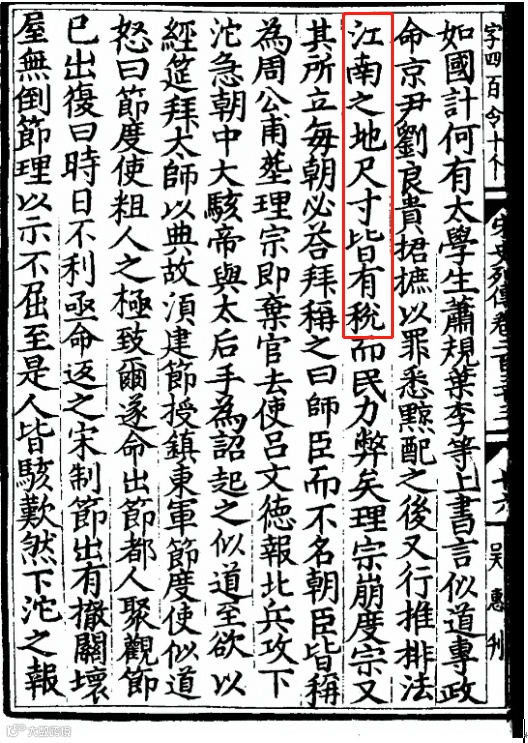 字四百今十个
宋史列傳卷二百三十三
十六
吴惠刊
如國計何有太學生蕭規葉李等上書言似道專政
命京尹劉良貴捃摭以罪悉黥配之後又行推排法
江南之地尺寸皆有稅而民力弊矣理宗崩度宗又
其所立每朝必荅拜稱之曰師臣而不名朝臣皆稱
為周公甫塟理宗即棄官去使吕文徳報北兵攻下
沱急朝中大駭帝與太后手為詔起之似道至欲以
經筵拜太師以典故湏建節授鎮東軍節度使似道
怒曰節度使粗人之極致爾遂命出節都人聚觀節
已出復曰時日不利亟命返之宋制節出有撤關壞
屋無倒節理以示不屈至是人皆駭歎然下沱之報